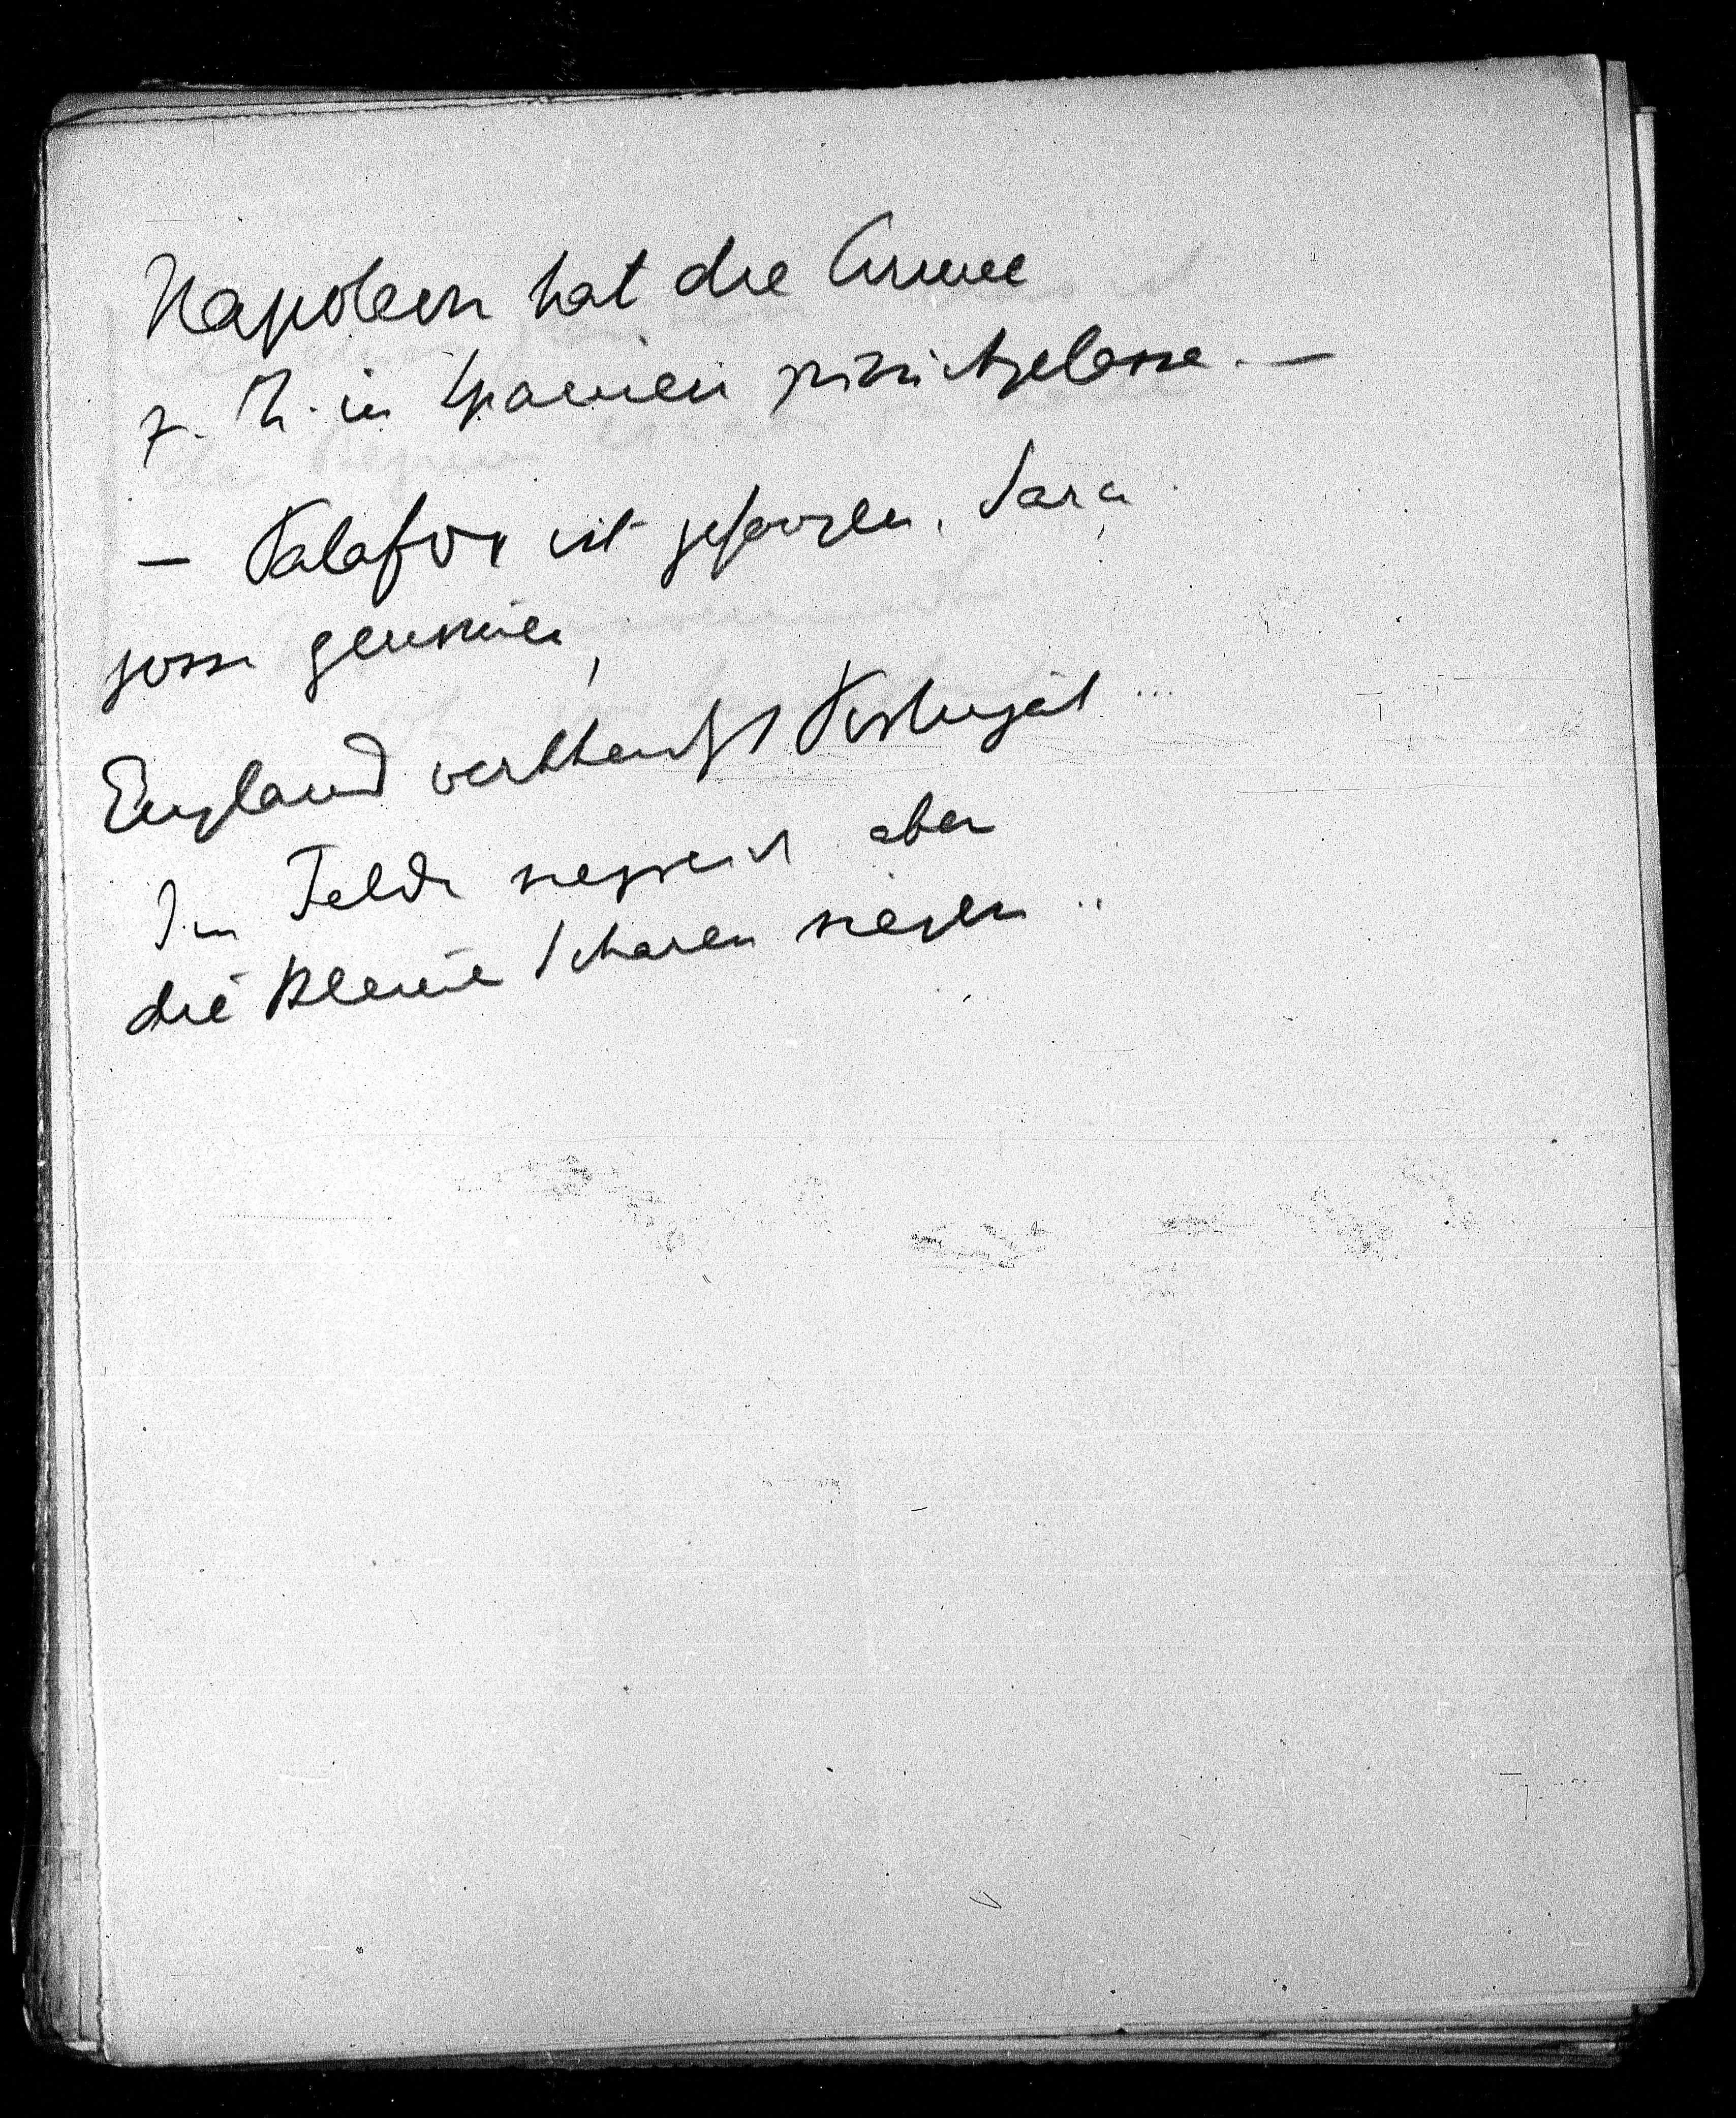 Napoleon hat die Armee
z. T. in Spanien zurückgelassen. —
— Palafox ist gefangen, Sara
gossa genommen,
England verteidigt Portugal ...
Im Felde siegreich aber
die kleinen Scharen siegen ..